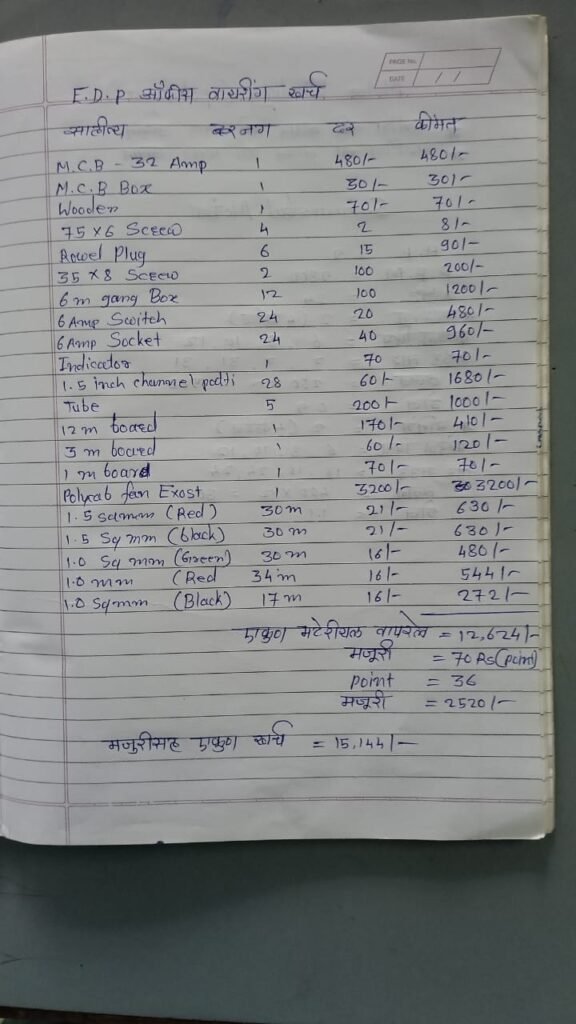 PAGE No.
DATE / /
E.D.P ऑफीस वायरींग खर्च
साहीत्य नग दर कीमत
M.C.B - 32 Amp 1 480/- 480/-
M.C.B Box 1 30/- 30/-
Wooden 1 70/- 70/-
75 x 6 Screw 4 2 8/-
Rowel Plug 6 15 90/-
35 x 8 Screw 2 100 200/-
6 m gang Box 12 100 1200/-
6 Amp Switch 24 20 480/-
6 Amp Socket 24 40 960/-
Indicator 1 70 70/-
1.5 inch channel patti 28 60/- 1680/-
Tube 5 200/- 1000/-
12 m board 1 170/- 410/-
3 m board 1 60/- 120/-
1 m board 1 70/- 70/-
Polycab fan Exost 1 3200/- 3200/-
1.5 sqmm (Red) 30 m 21/- 630/-
1.5 Sq mm (black) 30 m 21/- 630/-
1.0 Sq mm (Green) 30 m 16/- 480/-
1.0 mm (Red 34 m 16/- 544/-
1.0 Sqmm (Black) 17 m 16/- 272/-
एकुण मटेरीयल वापरले = 12,624/-
मजूरी = 70 Rs (point)
point = 36
मजूरी = 2520/-
मजुरीसह एकुण खर्च = 15,144/-